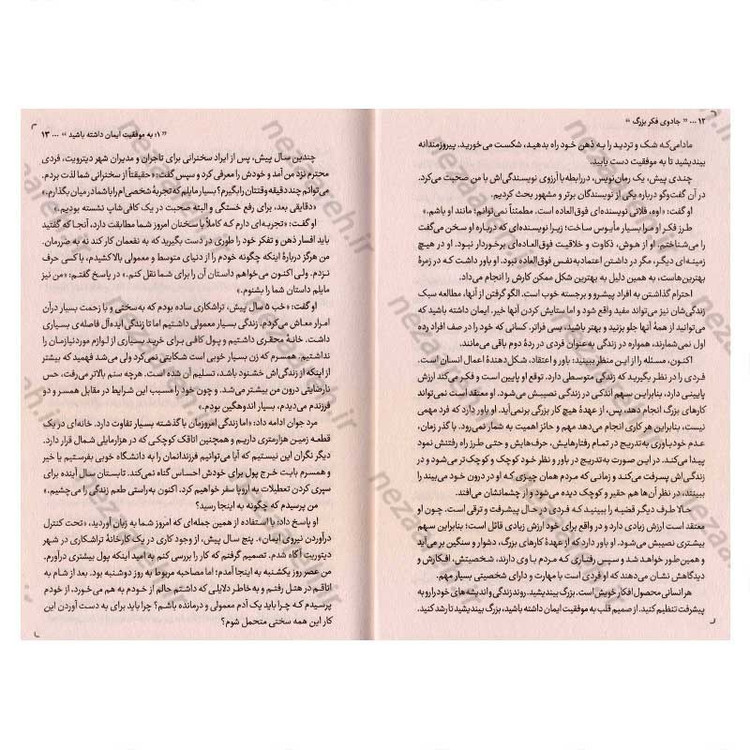 ۱۲ ... « جادوی فکر بزرگ »
مادامی‌که شک و تردید را به ذهن خود راه بدهید، شکست می‌خورید. پیروزمندانه
بیندیشید تا به موفقیت دست یابید.
چندی پیش، یک رمان‌نویس، در رابطه با آرزوی نویسندگی‌اش با من صحبت می‌کرد.
در آن گفت‌وگو درباره یکی از نویسندگان برتر و مشهور بحث کردیم.
او گفت: «اوه، فلانی نویسنده‌ای فوق‌العاده است. مطمئناً نمی‌توانم؛ مانند او باشم.»
طرز فکر او مرا بسیار مأیوس ساخت؛ زیرا نویسنده‌ای که درباره او سخن می‌گفت
را می‌شناختم. او از هوش، ذکاوت و خلاقیت فوق‌العاده‌ای برخوردار نبود. او در هیچ
زمینه‌ای دیگر، مگر در داشتن اعتمادبه‌نفس فوق‌العاده نبود. او باور داشت که در زمرهٔ
بهترین‌هاست، به همین دلیل به بهترین شکل ممکن کارش را انجام می‌داد.
احترام گذاشتن به افراد پیشرو و برجسته خوب است. الگو گرفتن از آنها، مطالعه سبک
زندگی‌شان نیز می‌تواند مفید واقع شود و اما ستایش کردن آنها خیر. ایمان داشته باشید که
می‌توانید از همهٔ آنها جلو بزنید و بهتر باشید، بسی فراتر. کسانی که خود را در صف افراد رده
اول نمی‌شمارند، همواره در زندگی به‌عنوان فردی در ردهٔ دوم باقی می‌مانند.
اکنون، مسئله را از این منظر ببینید: باور و اعتقاد، شکل‌دهندهٔ اعمال انسان است.
فردی را در نظر بگیرید که زندگی متوسطی دارد. توقع او پایین است و فکر می‌کند ارزش
پایینی دارد، بنابراین سهم اندکی در زندگی نصیبش می‌شود. او معتقد است نمی‌تواند
کارهای بزرگ انجام دهد، پس، از عهدهٔ هیچ کار بزرگی برنمی‌آید. او باور دارد که فرد مهمی
نیست، بنابراین هر کاری انجام می‌دهد مهم و حائز اهمیت به شمار نمی‌رود. با گذر زمان،
عدم خودباوری به‌تدریج در تمام رفتارهایش، حرف‌هایش و حتی طرز راه رفتنش نمود
پیدا می‌کند. در این صورت به‌تدریج در باور و نظر خود کوچک و کوچک‌تر می‌شود و در
زندگی‌اش پسرفت می‌کند و زمانی که مردم همان چیزی که او در درون خود می‌بیند را
ببینند، در نظر آن‌ها هم حقیر و کوچک دیده می‌شود و از چشمانشان می‌افتد.
حالا طرف دیگر قضیه را ببینید که فردی در حال پیشرفت و ترقی است. چون او
معتقد است ارزش زیادی دارد و در واقع برای خود ارزش زیادی قائل است؛ بنابراین سهم
بیشتری نصیبش می‌شود. او باور دارد که از عهده‌ٔ کارهای بزرگ، دشوار و سنگین بر می‌آید
و همین‌طور خواهد شد و سپس رفتاری که مردم با وی دارند، شخصیتش، افکارش و
دیدگاهش نشان می‌دهند که او فردی است با مهارت و دارای شخصیتی بسیار مهم.
هر انسانی محصول افکار خویش است. بزرگ بیندیشید. روند زندگی و اندیشه‌های خود را رو به
پیشرفت تنظیم کنید. از صمیم قلب به موفقیت ایمان داشته باشید، بزرگ بیندیشید تا رشد کنید.
« ۱؛ به موفقیت ایمان داشته باشید » ... ۱۳
چندین سال پیش، پس از ایراد سخنرانی برای تاجران و مدیران شهر دیترویت، فردی
محترم نزد من آمد و خودش را معرفی کرد و سپس گفت: «حقیقتاً از سخنرانی شما لذت بردم.
می‌توانم چند دقیقه وقتتان را بگیرم؟ بسیار مایلم که تجربهٔ شخصی‌ام را با شما در میان بگذارم.»
«دقایقی بعد، برای رفع خستگی و البته صحبت در یک کافی‌شاپ نشسته بودیم.»
او گفت: «تجربه‌ای دارم که کاملاً با سخنان امروز شما مطابقت دارد، آنجا که گفتید
باید افسار ذهن و تفکر خود را طوری در دست بگیرید که به نفعمان کار کند نه به ضررمان.
من هرگز دربارهٔ اینکه چگونه خودم را از دنیای متوسط و معمولی بالا کشیدم، با کسی حرف
نزدم. ولی اکنون می‌خواهم داستان آن را برای شما نقل کنم.» در پاسخ گفتم: «من نیز
مایلم داستان شما را بشنوم.»
او گفت: «خب ۵ سال پیش، تراشکاری ساده بودم که به‌سختی و با زحمت بسیار در آن
امرار معاش می‌کردم. زندگی بسیار معمولی داشتیم اما تا زندگی ایده‌آل فاصله‌ی بسیاری
داشت. خانهٔ محقری داشتیم و پول کافی برای خرید بسیاری از لوازم مورد نیازمان را
نداشتیم. همسرم که زن بسیار خوبی است شکایتی نمی‌کرد ولی می‌شد فهمید که بیشتر
از اینکه از زندگی‌اش خشنود باشد، تسلیم آن شده است. هرچه سنم بالاتر می‌رفت، حس
نارضایتی درون من بیشتر می‌شد. و چون مسبب این شرایط در مقابل همسر و دو
فرزندم می‌دیدم، بسیار اندوهگین بودم.»
مرد جوان ادامه داد: «اما زندگی امروزمان با گذشته بسیار تفاوت دارد. خانه‌ای در یک
قطعه زمین هزار متری داریم و همچنین اتاقک کوچکی که در هزار مایلی شمال قرار دارد.
دیگر نگران این نیستیم که آیا می‌توانیم فرزندانمان را به دانشگاه خوبی بفرستیم یا خیر
و همسرم بابت خرج پول برای خودش احساس گناه نمی‌کند. تابستان سال آینده برای
سپری کردن تعطیلات به اروپا سفر خواهیم کرد. اکنون به‌راستی طعم زندگی را می‌چشیم.»
من پرسیدم که چگونه به اینجا رسید؟
او پاسخ داد: «با استفاده از همین جمله‌ای که امروز شما به زبان آوردید، «تحت کنترل
درآوردن نیروی ایمان». پنج سال پیش، از وجود کاری در یک کارخانهٔ تراشکاری در شهر
دیترویت آگاه شدم. تصمیم گرفتم که کار را بررسی کنم به امید اینکه پول بیشتری درآورم.
من عصر روز یکشنبه به اینجا آمدم؛ اما مصاحبه مربوط به روز دوشنبه بود. بعد از شام به
اتاقم در هتل رفتم و به خاطر دلایلی که داشتم حالم از خودم به هم می‌خورد. از خودم
پرسیدم که چرا باید یک آدم معمولی و درمانده باشم؟ چرا باید برای به دست آوردن این
کار این همه سختی متحمل شوم؟
nezareh.ir